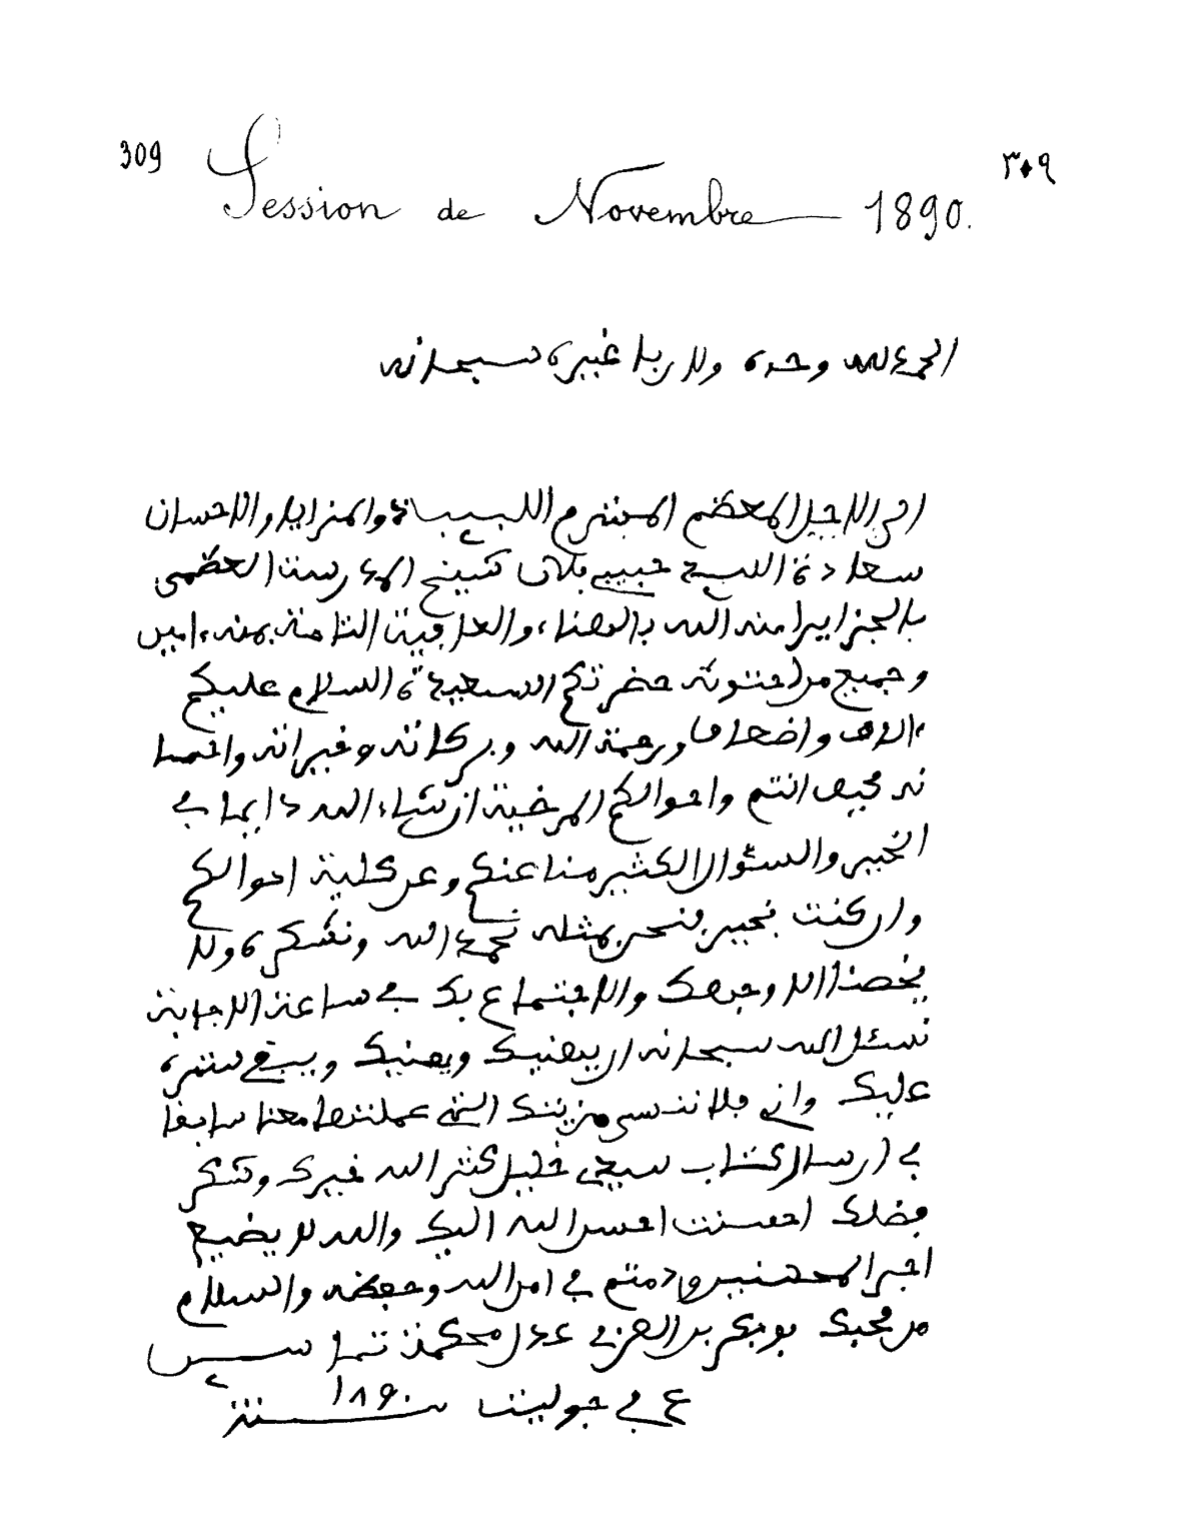 309
٣٠٩
Session de Novembre 1890.
الحمد لله وحده ولا ربا غيره سبحانه
الى الاجل المعظم المحترم اللبيب والمزايا والاحسان
سعادة السيد شيخ المدرسة العظمى
بالجزاير امنه الله بالهناء والعافية التامة بمنه ءامين
وجميع من احتوته حضرتكم السعيدة السلام عليكم
ءالاف واضعافا ورحمة الله وبركاته وخيراته وانعما
ته كيف انتم واحوالكم المرضية ان شاء الله دايما في
الخير والسئوال الكثير منا عنكم وعن كلية احوالكم
وان كنت بخير فنحن بمثله نحمد الله ونشكره ولا
يخصنا الا وجهك والاجتماع بك في ساعة الاجابة
نسئل الله سبحانه ان يبقيك ويهنيك ويبقي ستره
عليك واني فلا ننسى مزيتك التي عملتها معنا سابقا
في ارسال كتاب سيدي خليل كثر الله خيرك ونشكر
فضلك احسنت احسن الله اليك والله لا يضيع
اجر المحسنين ودمتم في امن الله وحفظه والسلام
من محبك بوبكر بن العربي عدل محكمة تماسين
ع في جوليت سنة ١٨٩٠